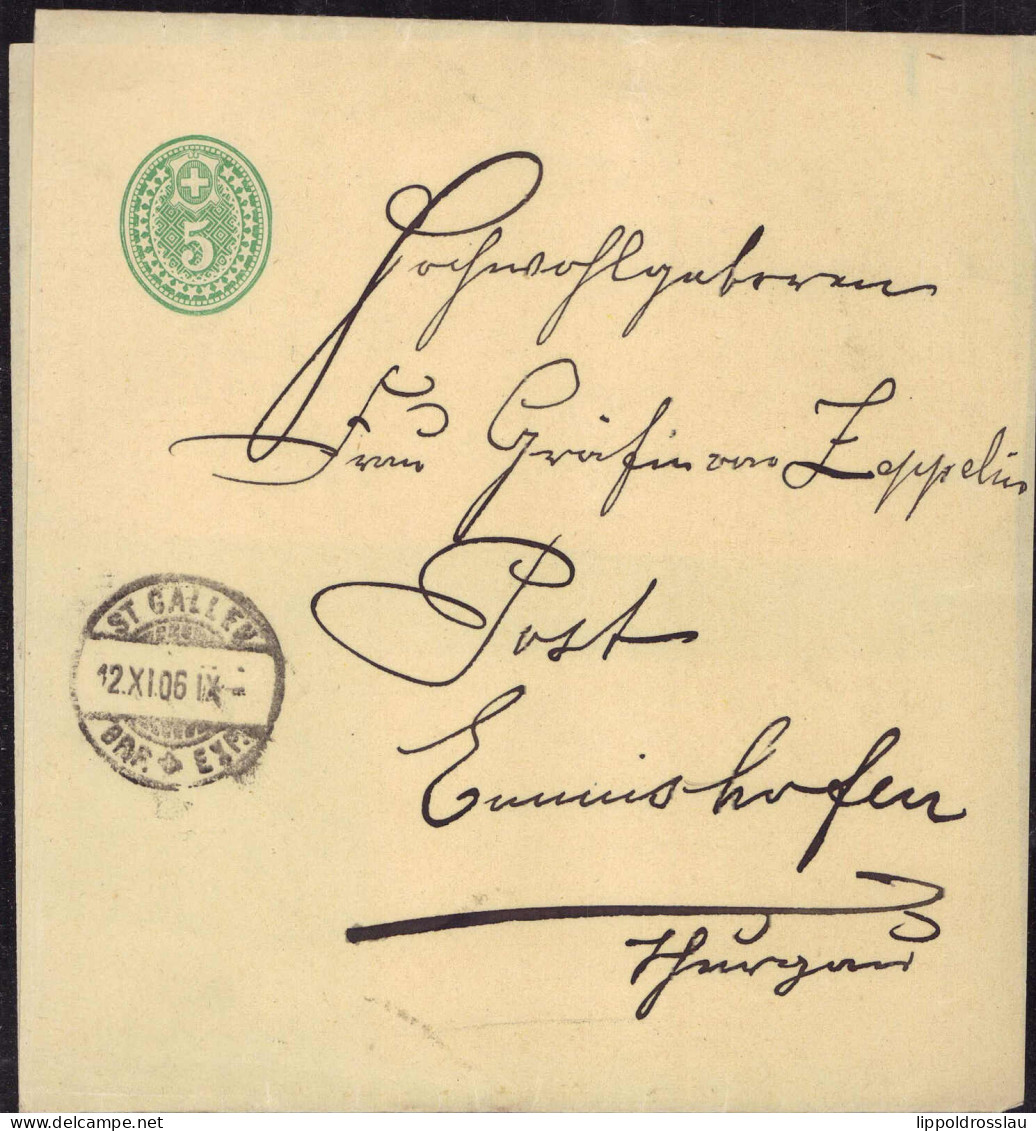 5
Hochwohlgeboren
Frau Gräfin von Zeppelin
Post
Emmishofen
Thurgau
ST. GALLEN
12.XI.06 IX-
BRF. EXP.
delcampe.net
lippoldrosslau